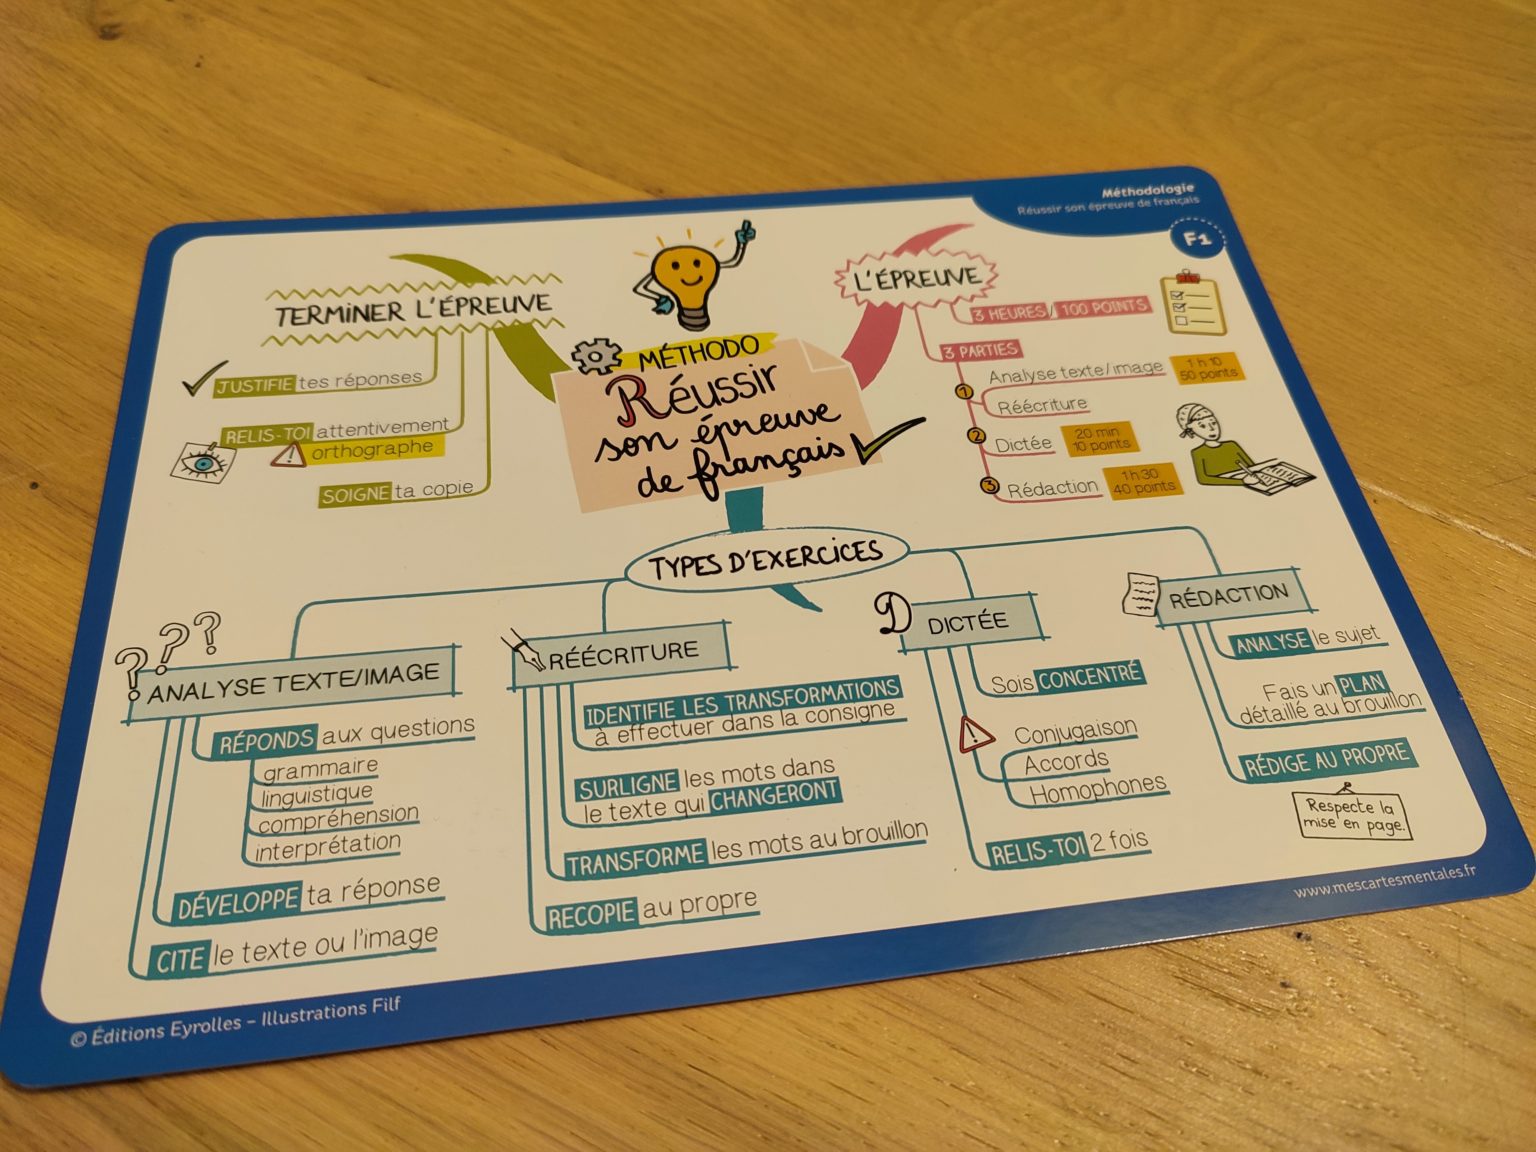 Méthodologie
Réussir son épreuve de français
F1
MÉTHODO
Réussir
son épreuve
de français
L'ÉPREUVE
3 HEURES / 100 POINTS
3 PARTIES
1
Analyse texte/image
1 h 10
50 points
Réécriture
2
Dictée
20 min
10 points
3
Rédaction
1h30
40 points
TERMINER L'ÉPREUVE
JUSTIFIE tes réponses
RELIS-TOI attentivement
orthographe
SOIGNE ta copie
TYPES D'EXERCICES
ANALYSE TEXTE/IMAGE
RÉPONDS aux questions
grammaire
linguistique
compréhension
interprétation
DÉVELOPPE ta réponse
CITE le texte ou l'image
RÉÉCRITURE
IDENTIFIE LES TRANSFORMATIONS
à effectuer dans la consigne
SURLIGNE les mots dans
le texte qui CHANGERONT
TRANSFORME les mots au brouillon
RECOPIE au propre
D
DICTÉE
Sois CONCENTRÉ
Conjugaison
Accords
Homophones
RELIS-TOI 2 fois
RÉDACTION
ANALYSE le sujet
Fais un PLAN
détaillé au brouillon
RÉDIGE AU PROPRE
Respecte la
mise en page.
www.mescartesmentales.fr
© Éditions Eyrolles – Illustrations Filf